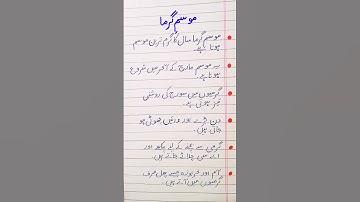 موسم گرما
موسم گرما سال کا گرم ترین موسم
ہوتا ہے
یہ موسم مارچ کے آخر میں شروع
ہوتا ہے
گرمیوں میں سورج کی روشنی
تیز ہوتی ہے
دن بڑے اور راتیں چھوٹی ہو
جاتی ہیں
گرمی سے بچنے کے لیے پنکھے اور
اے سی چلائے جاتے ہیں
آم اور خربوزہ جیسے پھل صرف
گرمیوں میں آتے ہیں